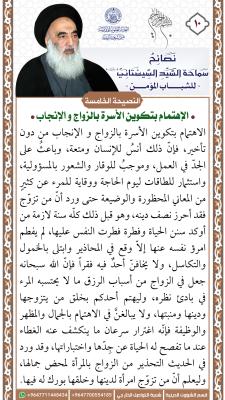 ١٠
نصائح
سماحة السيد السيستاني
للشباب المؤمن
النصيحة الخامسة
• الإهتمام بتكوين الأسرة بالزواج و الإنجاب •
الاهتمام بتكوين الأسرة بالزواج و الإنجاب من دون
تأخير، فإنّ ذلك أنسٌ للإنسان ومتعة، وباعثٌ على
الجدّ في العمل، وموجبٌ للوقار والشعور بالمسؤولية،
واستثمار للطاقات ليوم الحاجة ووقاية للمرء عن كثيرٍ
من المعاني المحظورة والوضيعة حتى ورد أنّ من تزوّج
فقد أحرز نصف دينه، وهو قبل ذلك كلّه سنة لازمة من
أوكد سنن الحياة وفطرة فطرت النفس عليها، لم يفطم
امرؤ نفسه عنها إلّا وقع في المحاذير وابتلى بالخمول
والتكاسل، ولا يخافنّ أحدٌ فيه فقراً فإنّ الله سبحانه
جعل في الزواج من أسباب الرزق ما لا يحتسبه المرء
في بادئ نظره، وليهتم أحدكم بخلق من يتزوجها
ودينها ومنبتها، ولا يبالغنّ في الاهتمام بالجمال والمظهر
والوظيفة فإنّه اغترار سرعان ما ينكشف عنه الغطاء
عند ما تفصح له الحياة عن جِدّها واختباراتها، وقد ورد
في الحديث التحذير من الزواج بالمرأة لمحض جمالها،
وليعلم أنّ من تزوّج امرأة لدينها وخلقها بورك له فيها.
قسم الشؤون الدينية
+9647700554185
+9647711448434